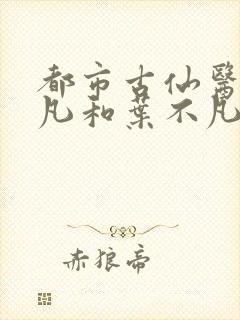 都市古仙醫
凡和葉不凡
赤狼帝